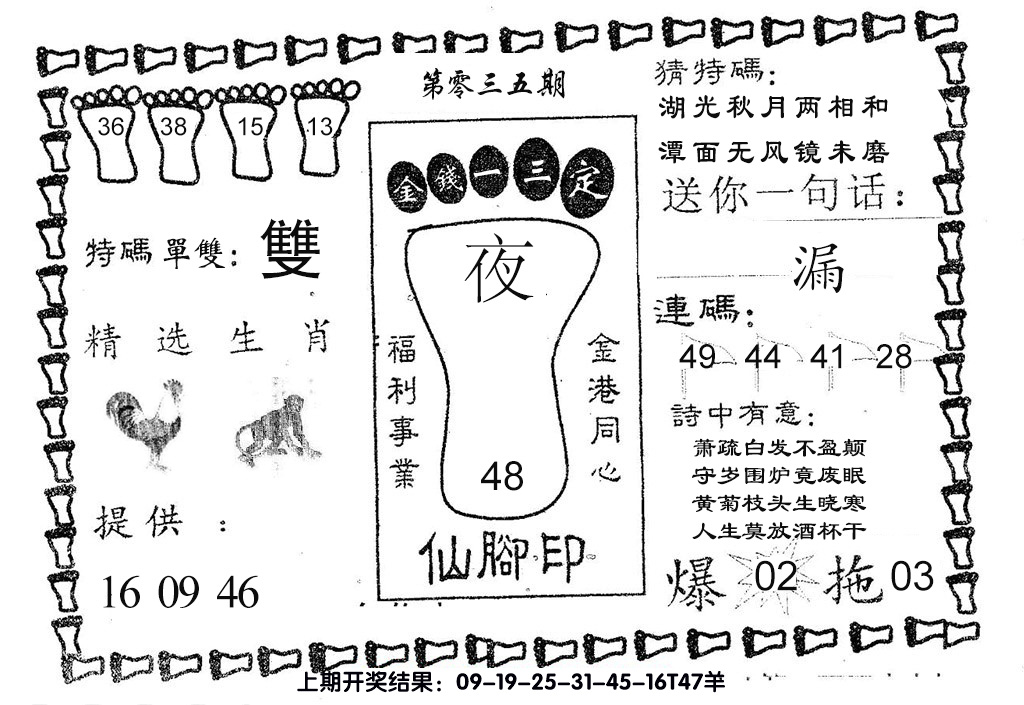 第零三五期
36 38 15 13
特碼單雙：雙
精选生肖
提供：
16 09 46
金錢一三定
夜
福利事業
金港同心
48
仙腳印
猜特碼：
湖光秋月两相和
潭面无风镜未磨
送你一句话：
漏
連碼：
49 44 41 28
詩中有意：
萧疏白发不盈颠
守岁围炉竟废眠
黄菊枝头生晓寒
人生莫放酒杯干
爆 02 拖 03
上期开奖结果：09-19-25-31-45-16T47羊